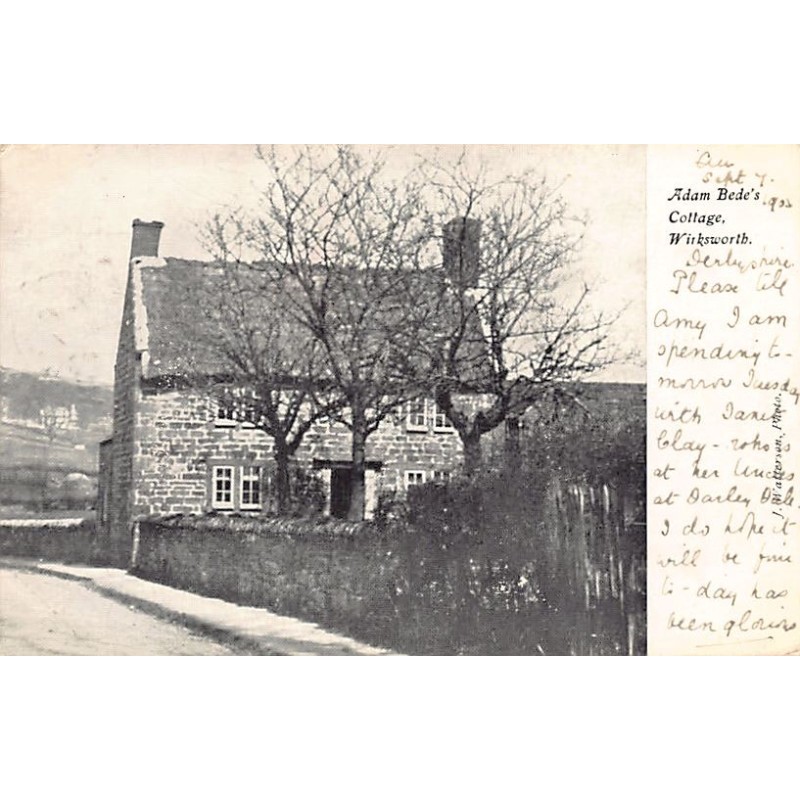 Sept 7.
Adam Bede's
Cottage,
Wirksworth.
Derbyshire
Please tell
Amy I am
spending to-
morrow Tuesday
with Janie
Clay - who is
at her Uncles
at Darley Dale
I do hope it
will be fine
to-day has
been glorious
J. Watterson, Photo.